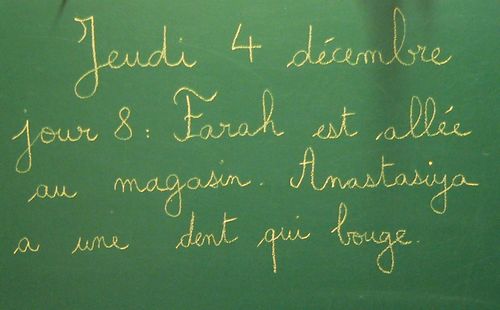 Jeudi 4 décembre
jour 8 : Farah est allée
au magasin. Anastasiya
a une dent qui bouge.